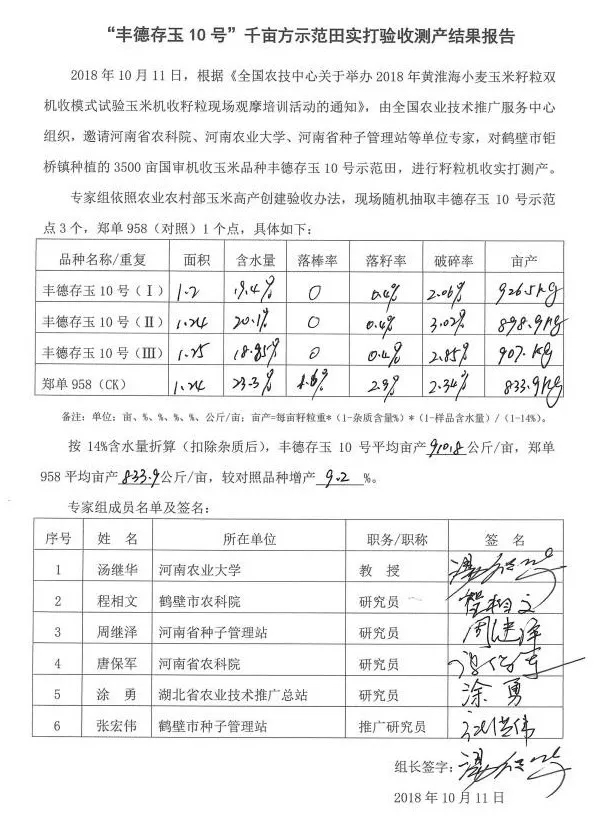 “丰德存玉10号”千亩方示范田实打验收测产结果报告
2018年10月11日，根据《全国农技中心关于举办2018年黄淮海小麦玉米籽粒双
机收模式试验玉米机收籽粒现场观摩培训活动的通知》，由全国农业技术推广服务中心
组织，邀请河南省农科院、河南农业大学、河南省种子管理站等单位专家，对鹤壁市钜
桥镇种植的3500亩国审机收玉米品种丰德存玉10号示范田，进行籽粒机收实打测产。
专家组依照农业农村部玉米高产创建验收办法，现场随机抽取丰德存玉10号示范
点3个，郑单958（对照）1个点，具体如下：
品种名称/重复 面积 含水量 落棒率 落籽率 破碎率 亩产
丰德存玉10号（Ⅰ） 1.2 19.4% 0 0.4% 2.06% 926.5kg
丰德存玉10号（Ⅱ） 1.24 20.1% 0 0.4% 3.02% 898.9kg
丰德存玉10号（Ⅲ） 1.25 18.85% 0 0.4% 2.85% 907.kg
郑单958（CK） 1.24 23.3% 1.6% 2.9% 2.34% 833.9kg
备注：单位：亩、%、%、%、%、公斤/亩；亩产=每亩籽粒重*（1-杂质含量%）*（1-样品含水量）/（1-14%）。
按14%含水量折算（扣除杂质后），丰德存玉10号平均亩产910.8公斤/亩，郑单
958平均亩产833.9公斤/亩，较对照品种增产9.2%。
专家组成员名单及签名：
序号 姓名 所在单位 职务/职称 签名
1 汤继华 河南农业大学 教授
2 程相文 鹤壁市农科院 研究员 程相文
3 周继泽 河南省种子管理站 研究员 周继泽
4 唐保军 河南省农科院 研究员
5 涂勇 湖北省农业技术推广总站 研究员 涂勇
6 张宏伟 鹤壁市种子管理站 推广研究员 张宏伟
组长签字：
2018年10月11日